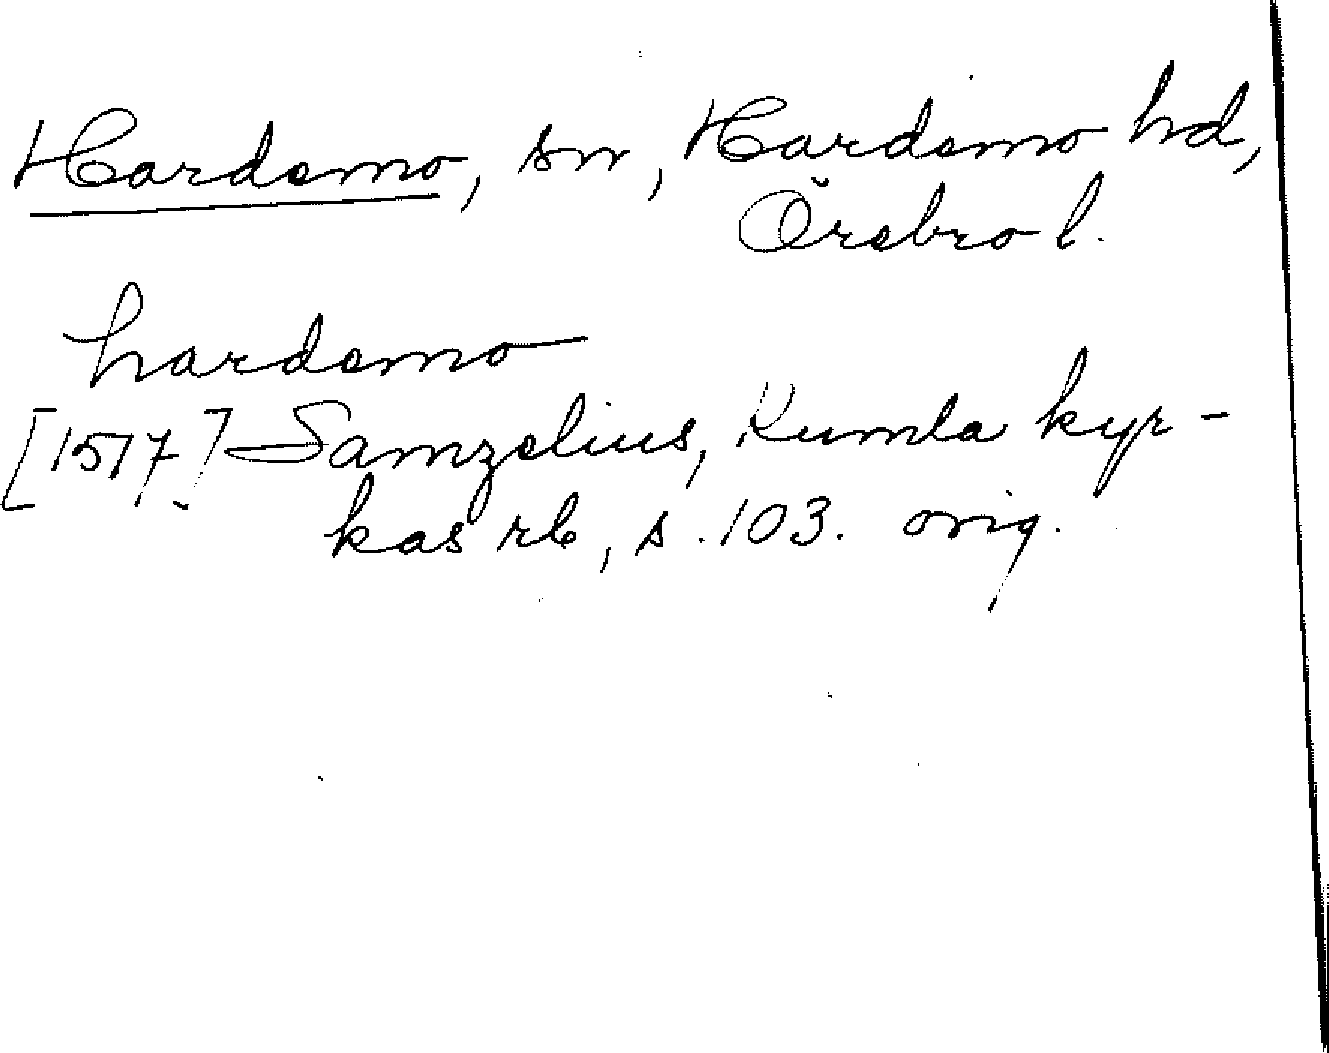 Hardemo, sn, Hardemo hd,
Örebro l.
hardemo
[1517] Samzelius, Kumla kyr-
kas rb, s. 103. orig.